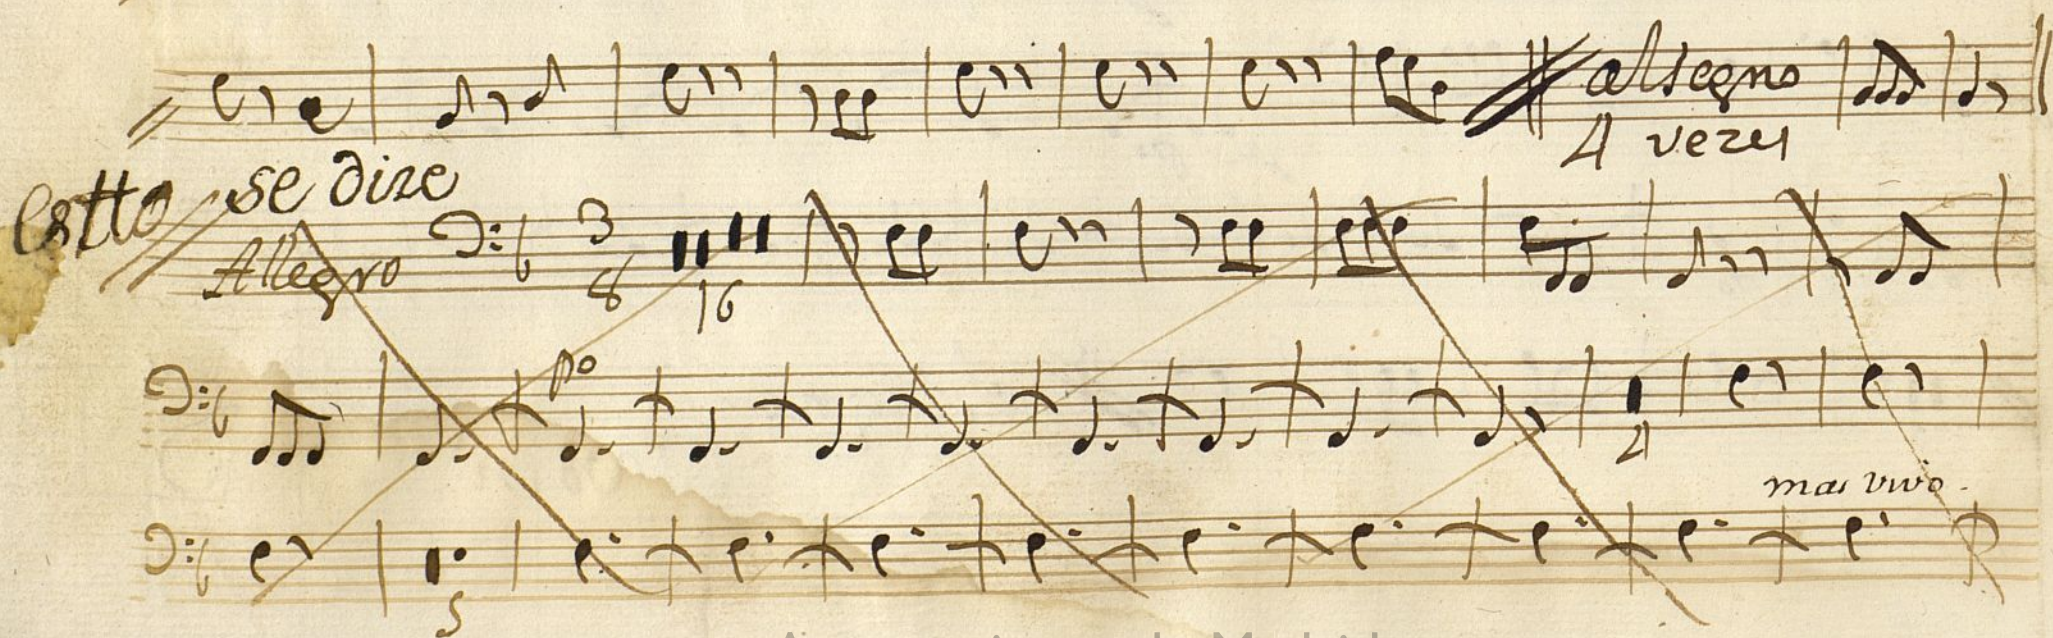 al segno
4 vezes
Estto se dize
Allegro 3
8 16
po
4
mas vivo.
5